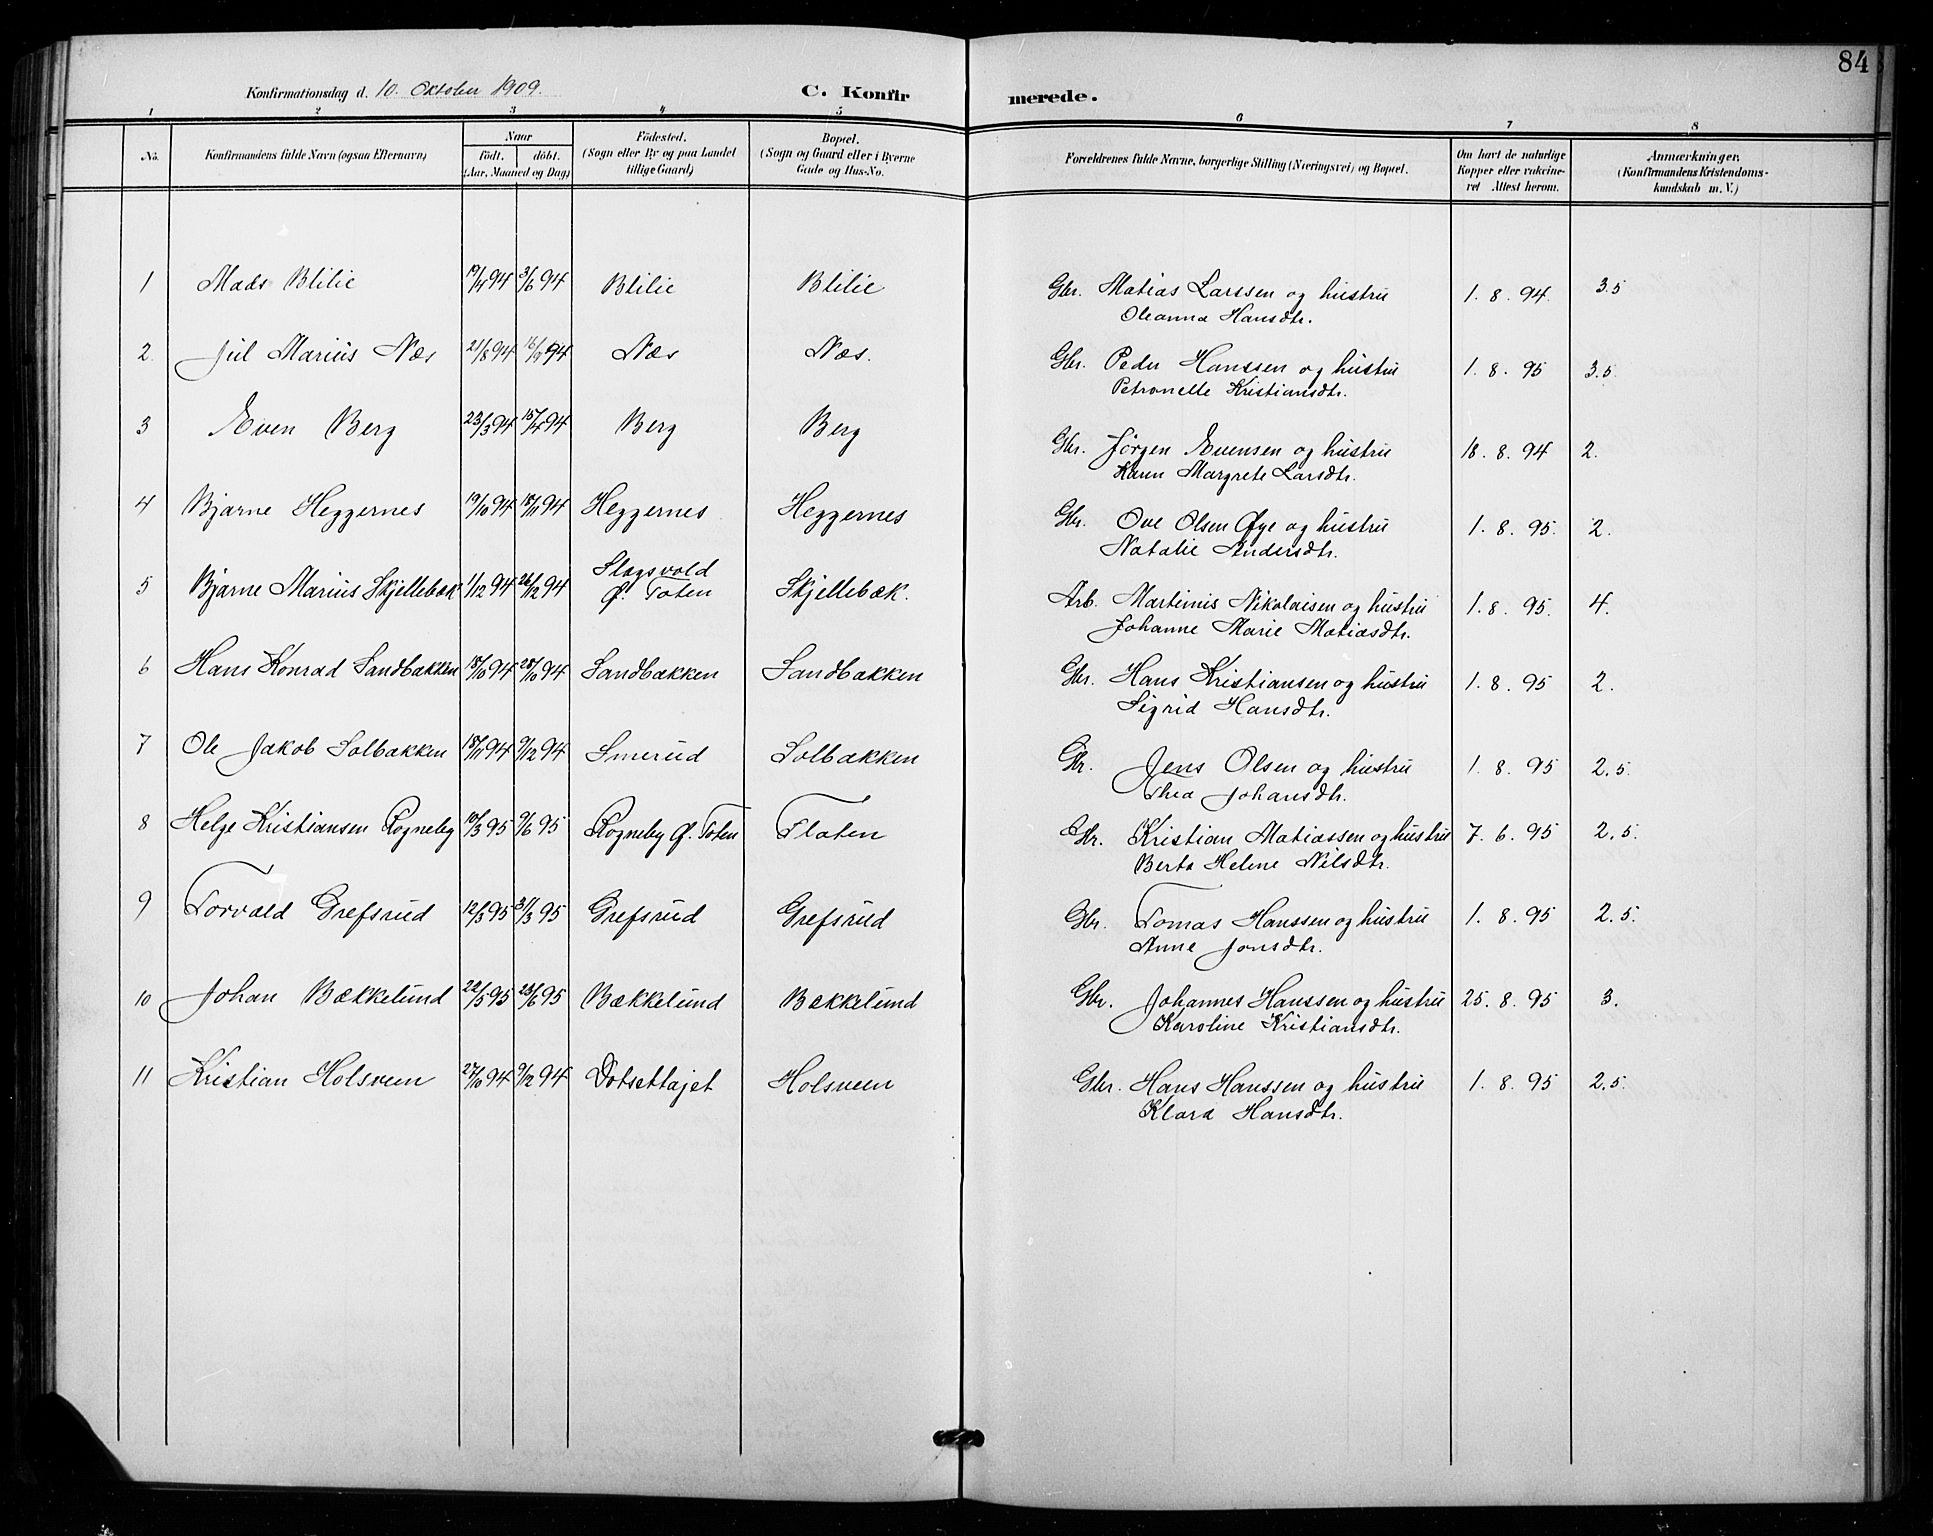 84
Konfirmationsdag d. 10. Oktober 1909. C. Konfirmerede.
1 2 3 4 5 6 7 8
No. Konfirmandens fulde Navn (ogsaa Efternavn) Naar født. døbt. (Aar, Maaned og Dag) Fødested. (Sogn eller By og paa Landet tillige Gaard) Bopæl. (Sogn og Gaard eller i Byerne Gade og Hus-No. Forældrenes fulde Navne, borgerlige Stilling (Næringsvei) og Bopæl. Om havt de naturlige Kopper eller vakcineret Attest herom. Anmærkninger. (Konfirmandens Kristendomskundskab m. V.)
1 Mads Blilie 19/4 94 3/6 94 Blilie Blilie Gbr. Matias Larssen og hustru 1. 8. 94. 3.5
Oleanna Hansdtr.
2. Jul Marius Næs 21/8 94 16/9 94 Næs Næs. Gbr. Peder Hanssen og hustru 1. 8. 95 3.5.
Petronelle Kristiansdtr.
3 Even Berg 23/3 94 15/4 94 Berg Berg Gbr. Jørgen Evensen og hustru 18. 8. 94 2.
Karen Margrete Larsdtr.
4 Bjarne Heggernes 19/10 94 18/11 94 Heggernes Heggernes Gbr. Ove Olsen Øye og hustru 1. 8. 95. 2.
Natalie Andersdtr.
5 Bjarne Marius Skjellebæk 1/12 94 26/12 94 Slagsvold Ø. Toten Skjellebæk. Arb. Martinus Nikolaisen og hustru 1. 8. 95. 4.
Johanne Marie Matiasdtr.
6 Hans Konrad Sandbakken 18/10 94 28/10 94 Sandbakken Sandbakken Gbr. Hans Kristiansen og hustru 1. 8. 95 2.
Sigrid Hansdtr.
7 Ole Jakob Solbakken 18/11 94 9/12 94 Smerud Solbakken Gbr. Jens Olsen og hustru 1. 8. 95 2.5.
Thea Johansdtr.
8 Helge Kristiansen Rogneby 10/3 95 9/6 95 Rogneby Ø. Toten Flaten Gbr. Kristian Matiassen og hustru 7. 6. 95 2.5.
Berta Helene Nilsdtr.
9 Torvald Grefsrud 12/3 95 31/3 95 Grefsrud Grefsrud Gbr. Tomas Hanssen og hustru 1. 8. 95 2.5.
Anne Jonsdtr.
10 Johan Bækkelund 22/5 95 23/6 95 Bækkelund Bækkelund Gbr. Johannes Hanssen og hustru 25. 8. 95 3.
Karoline Kristiansdtr.
11 Kristian Holsveen 27/10 94 9/12 94 Dotsettajet Holsveen Gbr. Hans Hanssen og hustru 1. 8. 95 2.5.
Klara Hansdtr.